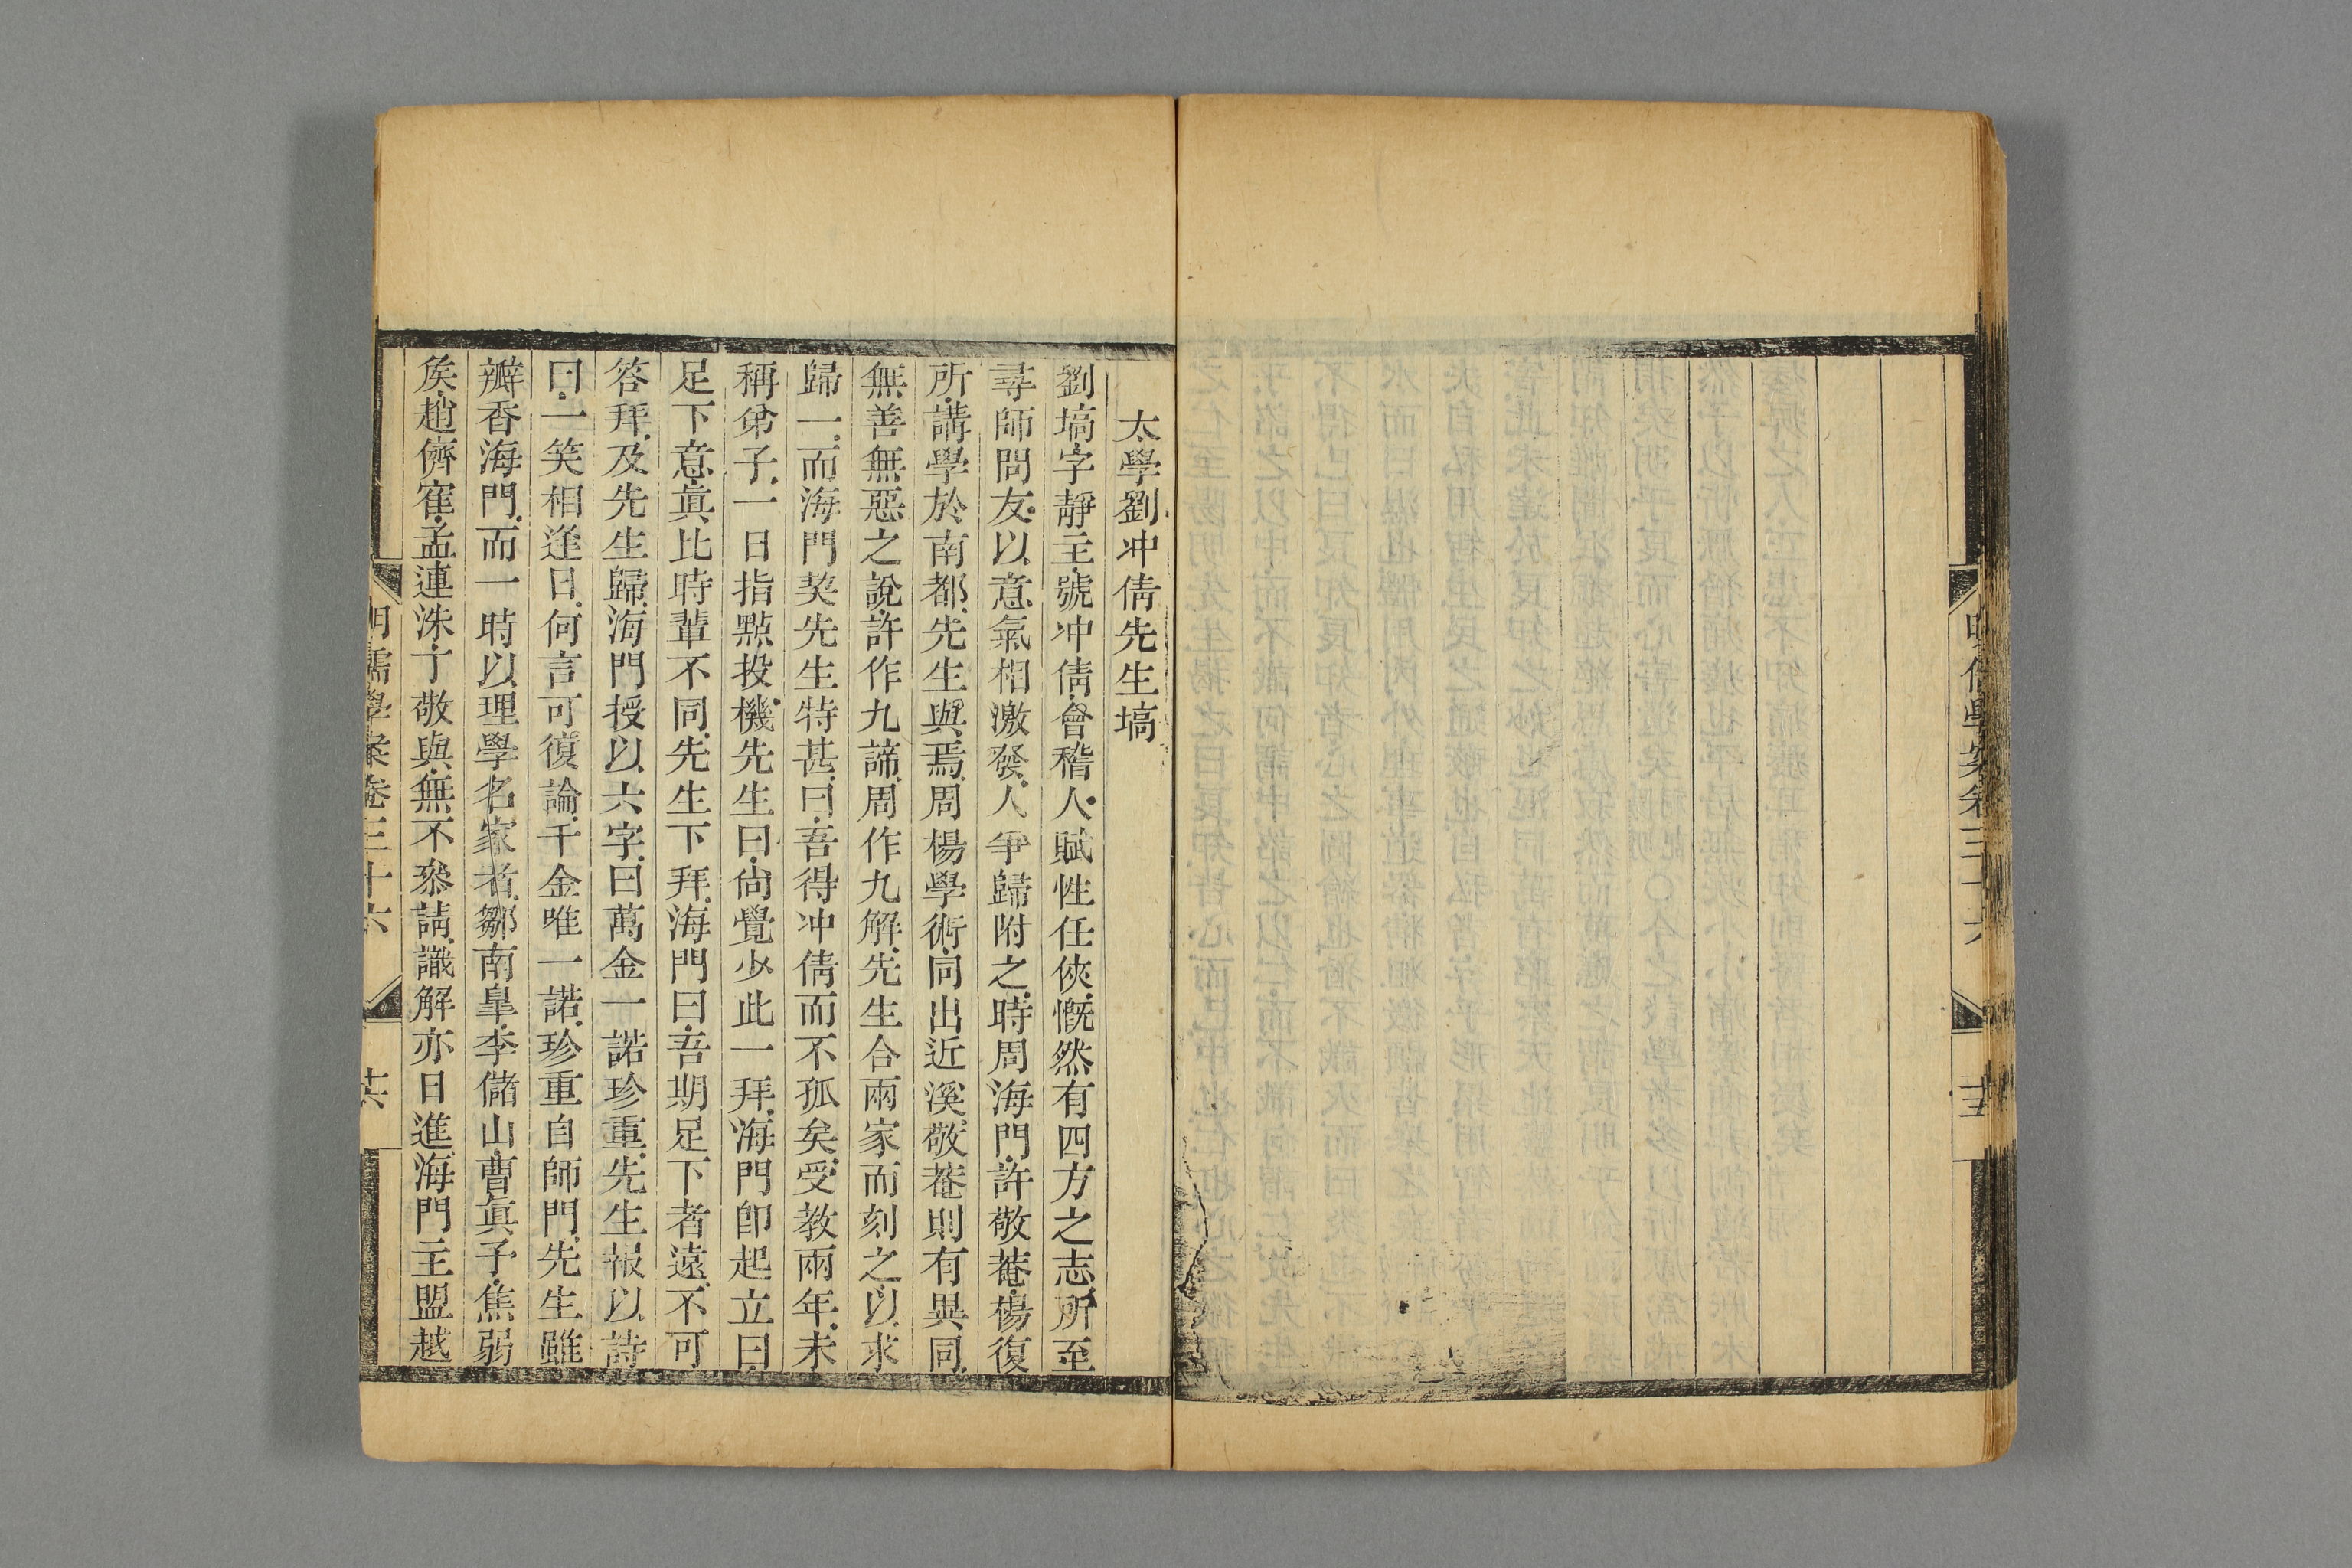 明儒學案卷三十六
太學劉冲倩先生塙
劉塙字靜主號冲倩會稽人賦性任俠慨然有四方之志所至
尋師問友以意氣相激發人爭歸附之時周海門許敬菴楊復
所講學於南都先生與焉周楊學術同出近溪敬菴則有異同
無善無惡之說許作九諦周作九解先生合兩家而刻之以求
歸一而海門契先生特甚曰吾得冲倩而不孤矣受教兩年未
稱弟子一日指點投機先生曰尙覺少此一拜海門卽起立曰
足下意眞比時輩不同先生下拜海門曰吾期足下者遠不可
答拜及先生歸海門授以六字曰萬金一諾珍重先生報以詩
曰一笑相逢日何言可復論千金唯一諾珍重自師門先生雖
瓣香海門而一時以理學名家者鄒南臯李儲山曹眞予焦弱
矦趙儕寉孟連洙丁敬與無不叅請識解亦日進海門主盟越
明儒學案卷三十六